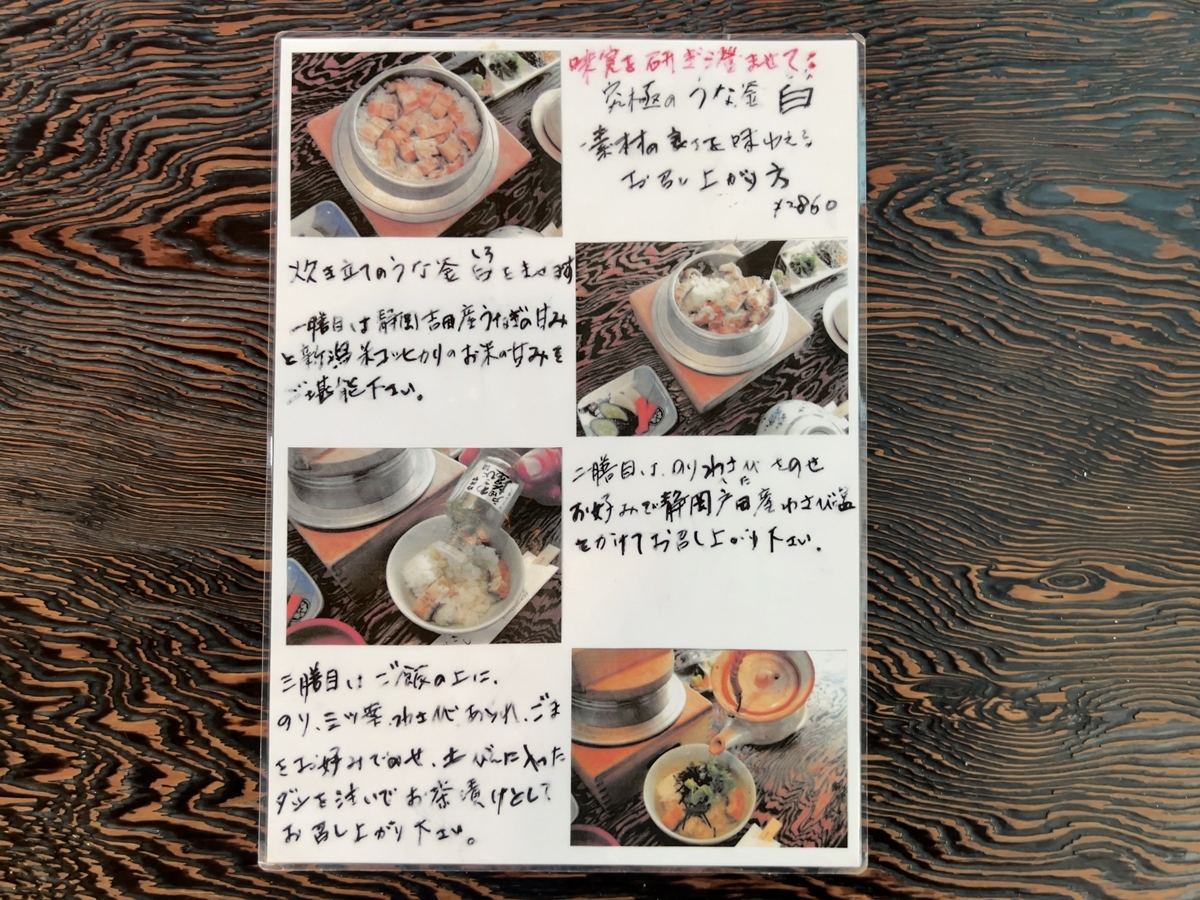 味覚を研ぎ澄ませて:
究極のうな釜 白
素材の良さを味わえる
お召し上がり方
¥2860
しろ
炊き立てのうな釜 白をまぜます
一膳目は静岡吉田産うなぎの甘み
と新潟米コシヒカリのお米の甘みを
ご堪能下さい。
二膳目は、のりわさびをのせ
へた
お好みで静岡戸田産わさび塩
をかけてお召し上がり下さい。
三膳目はご飯の上に、
のり、三ツ葉、わさび、あられ、ごま
をお好みでのせ、土びんに入った
ダシを注いでお茶漬けとして
お召し上がり下さい。